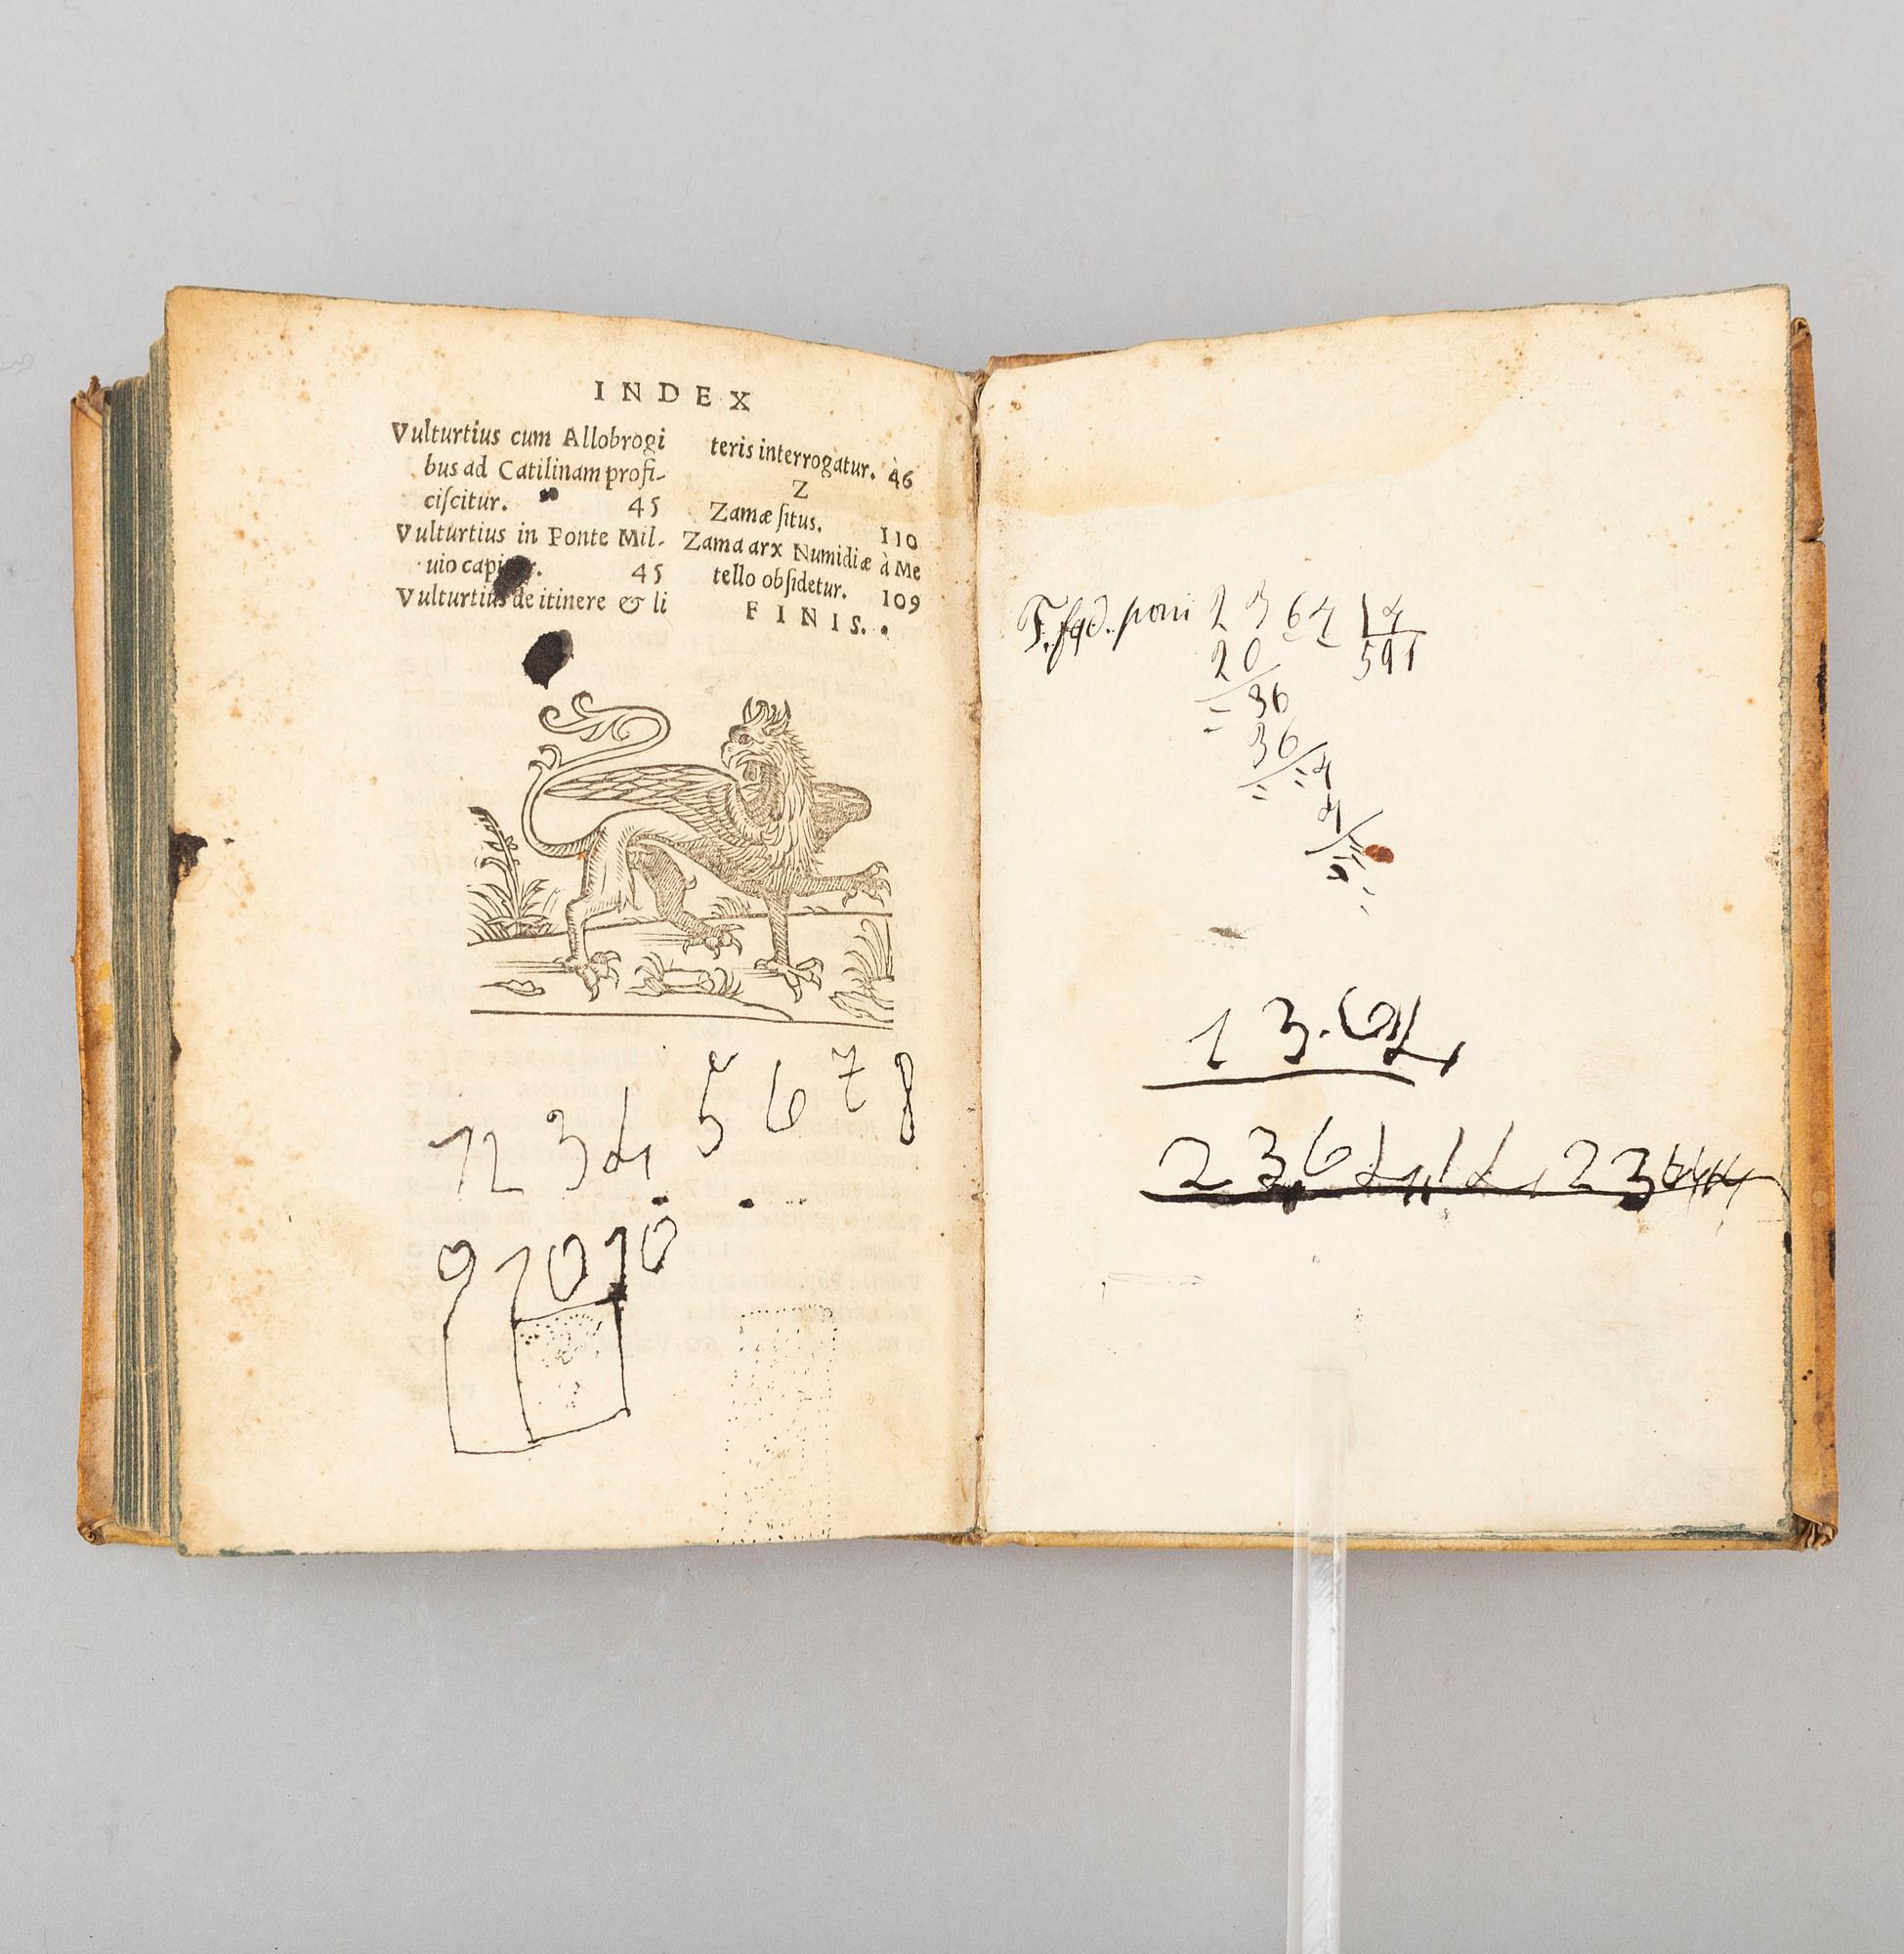 INDEX
Vulturtius cum Allobrogi
bus ad Catilinam profi-
ciſcitur. 45
Vulturtius in Ponte Mil-
uio capitur. 45
Vulturtius de itinere & li
teris interrogatur. 46
Z
Zamæ ſitus. 110
Zama arx Numidiæ à Me
tello obſidetur. 109
FINIS.
1 2 3 4 5 6 7 8
9 10 10
2364 4
20 591
36
36
4
4
1 3.64
2364